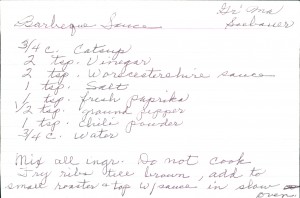 Barbeque Sauce
Gr' Ma
3/4 c. Catsup
2 tsp. Vinegar
2 tsp. Worcestershire sauce
1 tsp. Salt
1/2 tsp. fresh paprika
1/2 tsp. ground pepper
1 tsp. chili powder
3/4 c. water
Mix all ingr. Do not cook
Fry ribs till brown, add to
small roaster & top w/sauce in slow
oven